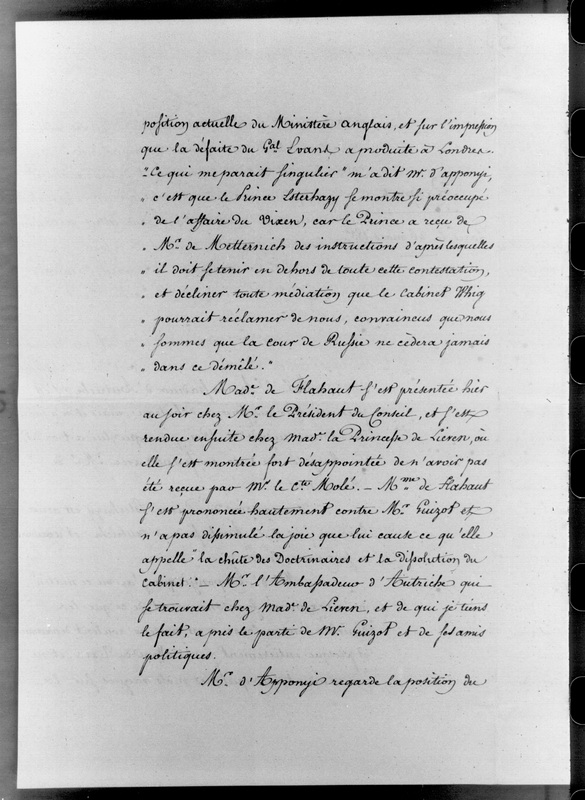 position actuelle du Ministère anglais, et sur l'impression
que la défaite du Gal Evans a produite à Londres.
"Ce qui me parait singulier" m'a dit Mr. d'apponyi,
" c'est que le Prince Esterhazy se montre si préoccupé
" de l'affaire du Vixen, car le Prince a reçu de
" Mr. de Metternich des instructions d'après lesquelles
" il doit se tenir en dehors de toute cette contestation,
" et décliner toute médiation que le Cabinet Whig
" pourrait réclamer de nous, convaincus que nous
" sommes que la cour de Russie ne cèdera jamais
" dans ce démêlé."
Made. de Flahaut s'est présentée hier
au soir chez Mr. le Président du Conseil, et s'est
rendue ensuite chez made. la Princesse de Lieven, où
elle s'est montrée fort désappointée de n'avoir pas
été reçue par Mr. le Cte. Molé. — Mme de Flahaut
s'est prononcée hautement contre Mr. Guizot et
n'a pas dissimulé la joie que lui cause ce qu'elle
appelle "la chûte des Doctrinaires et la dissolution du
Cabinet." — Mr. l'Ambassadeur d'Autriche qui
se trouvait chez made. de Lieven, et de qui je tiens
le fait, a pris le parti de Mr. Guizot et de ses amis
politiques.
Mr. d'Apponyi regarde la position du